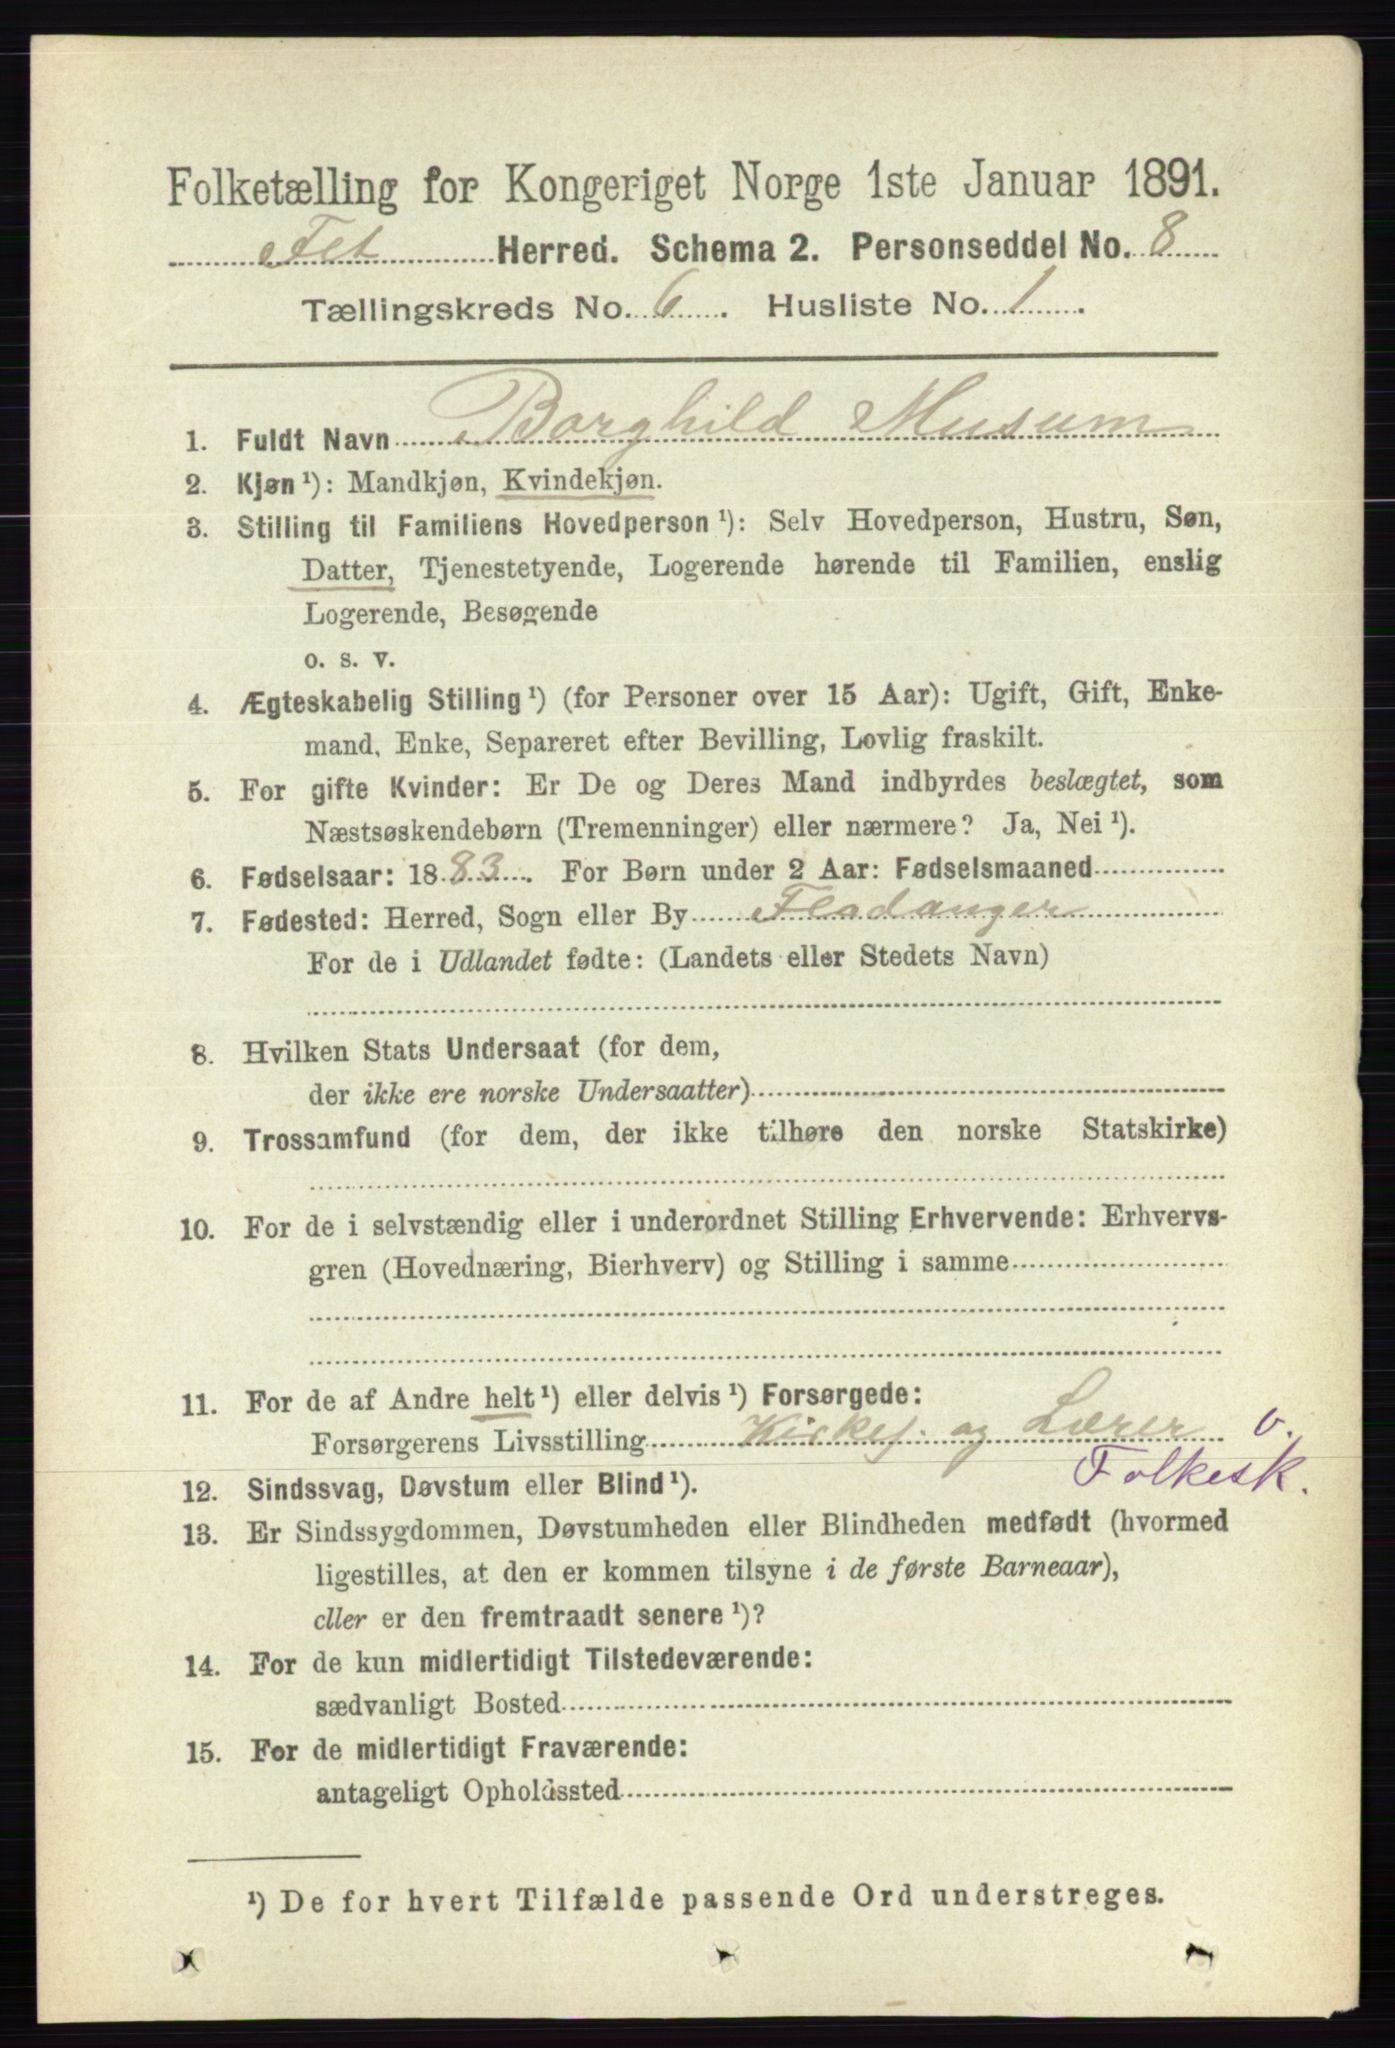 Folketælling for Kongeriget Norge 1ste Januar 1891.
Fet Herred. Schema 2. Personseddel No. 8
Tællingskreds No. 6. Husliste No. 1.
1. Fuldt Navn Borghild Musum
2. Kjøn ¹): Mandkjøn, Kvindekjøn.
3. Stilling til Familiens Hovedperson ¹): Selv Hovedperson, Hustru, Søn,
Datter, Tjenestetyende, Logerende hørende til Familien, enslig
Logerende, Besøgende
o. s. v.
4. Ægteskabelig Stilling ¹) (for Personer over 15 Aar): Ugift, Gift, Enke-
mand, Enke, Separeret efter Bevilling, Lovlig fraskilt.
5. For gifte Kvinder: Er De og Deres Mand indbyrdes beslægtet, som
Næstsøskendebørn (Tremenninger) eller nærmere? Ja, Nei ¹).
6. Fødselsaar: 1883. For Børn under 2 Aar: Fødselsmaaned
7. Fødested: Herred, Sogn eller By Fladanger
For de i Udlandet fødte: (Landets eller Stedets Navn)
8. Hvilken Stats Undersaat (for dem,
der ikke ere norske Undersaatter)
9. Trossamfund (for dem, der ikke tilhøre den norske Statskirke)
10. For de i selvstændig eller i underordnet Stilling Erhvervende: Erhvervs-
gren (Hovednæring, Bierhverv) og Stilling i samme
11. For de af Andre helt ¹) eller delvis ¹) Forsørgede:
Forsørgerens Livsstilling Kirkes. og Lærer v.
Folkesk.
12. Sindssvag, Døvstum eller Blind ¹).
13. Er Sindssygdommen, Døvstumheden eller Blindheden medfødt (hvormed
ligestilles, at den er kommen tilsyne i de første Barneaar),
eller er den fremtraadt senere ¹)?
14. For de kun midlertidigt Tilstedeværende:
sædvanligt Bosted
15. For de midlertidigt Fraværende:
antageligt Opholdssted
¹) De for hvert Tilfælde passende Ord understreges.